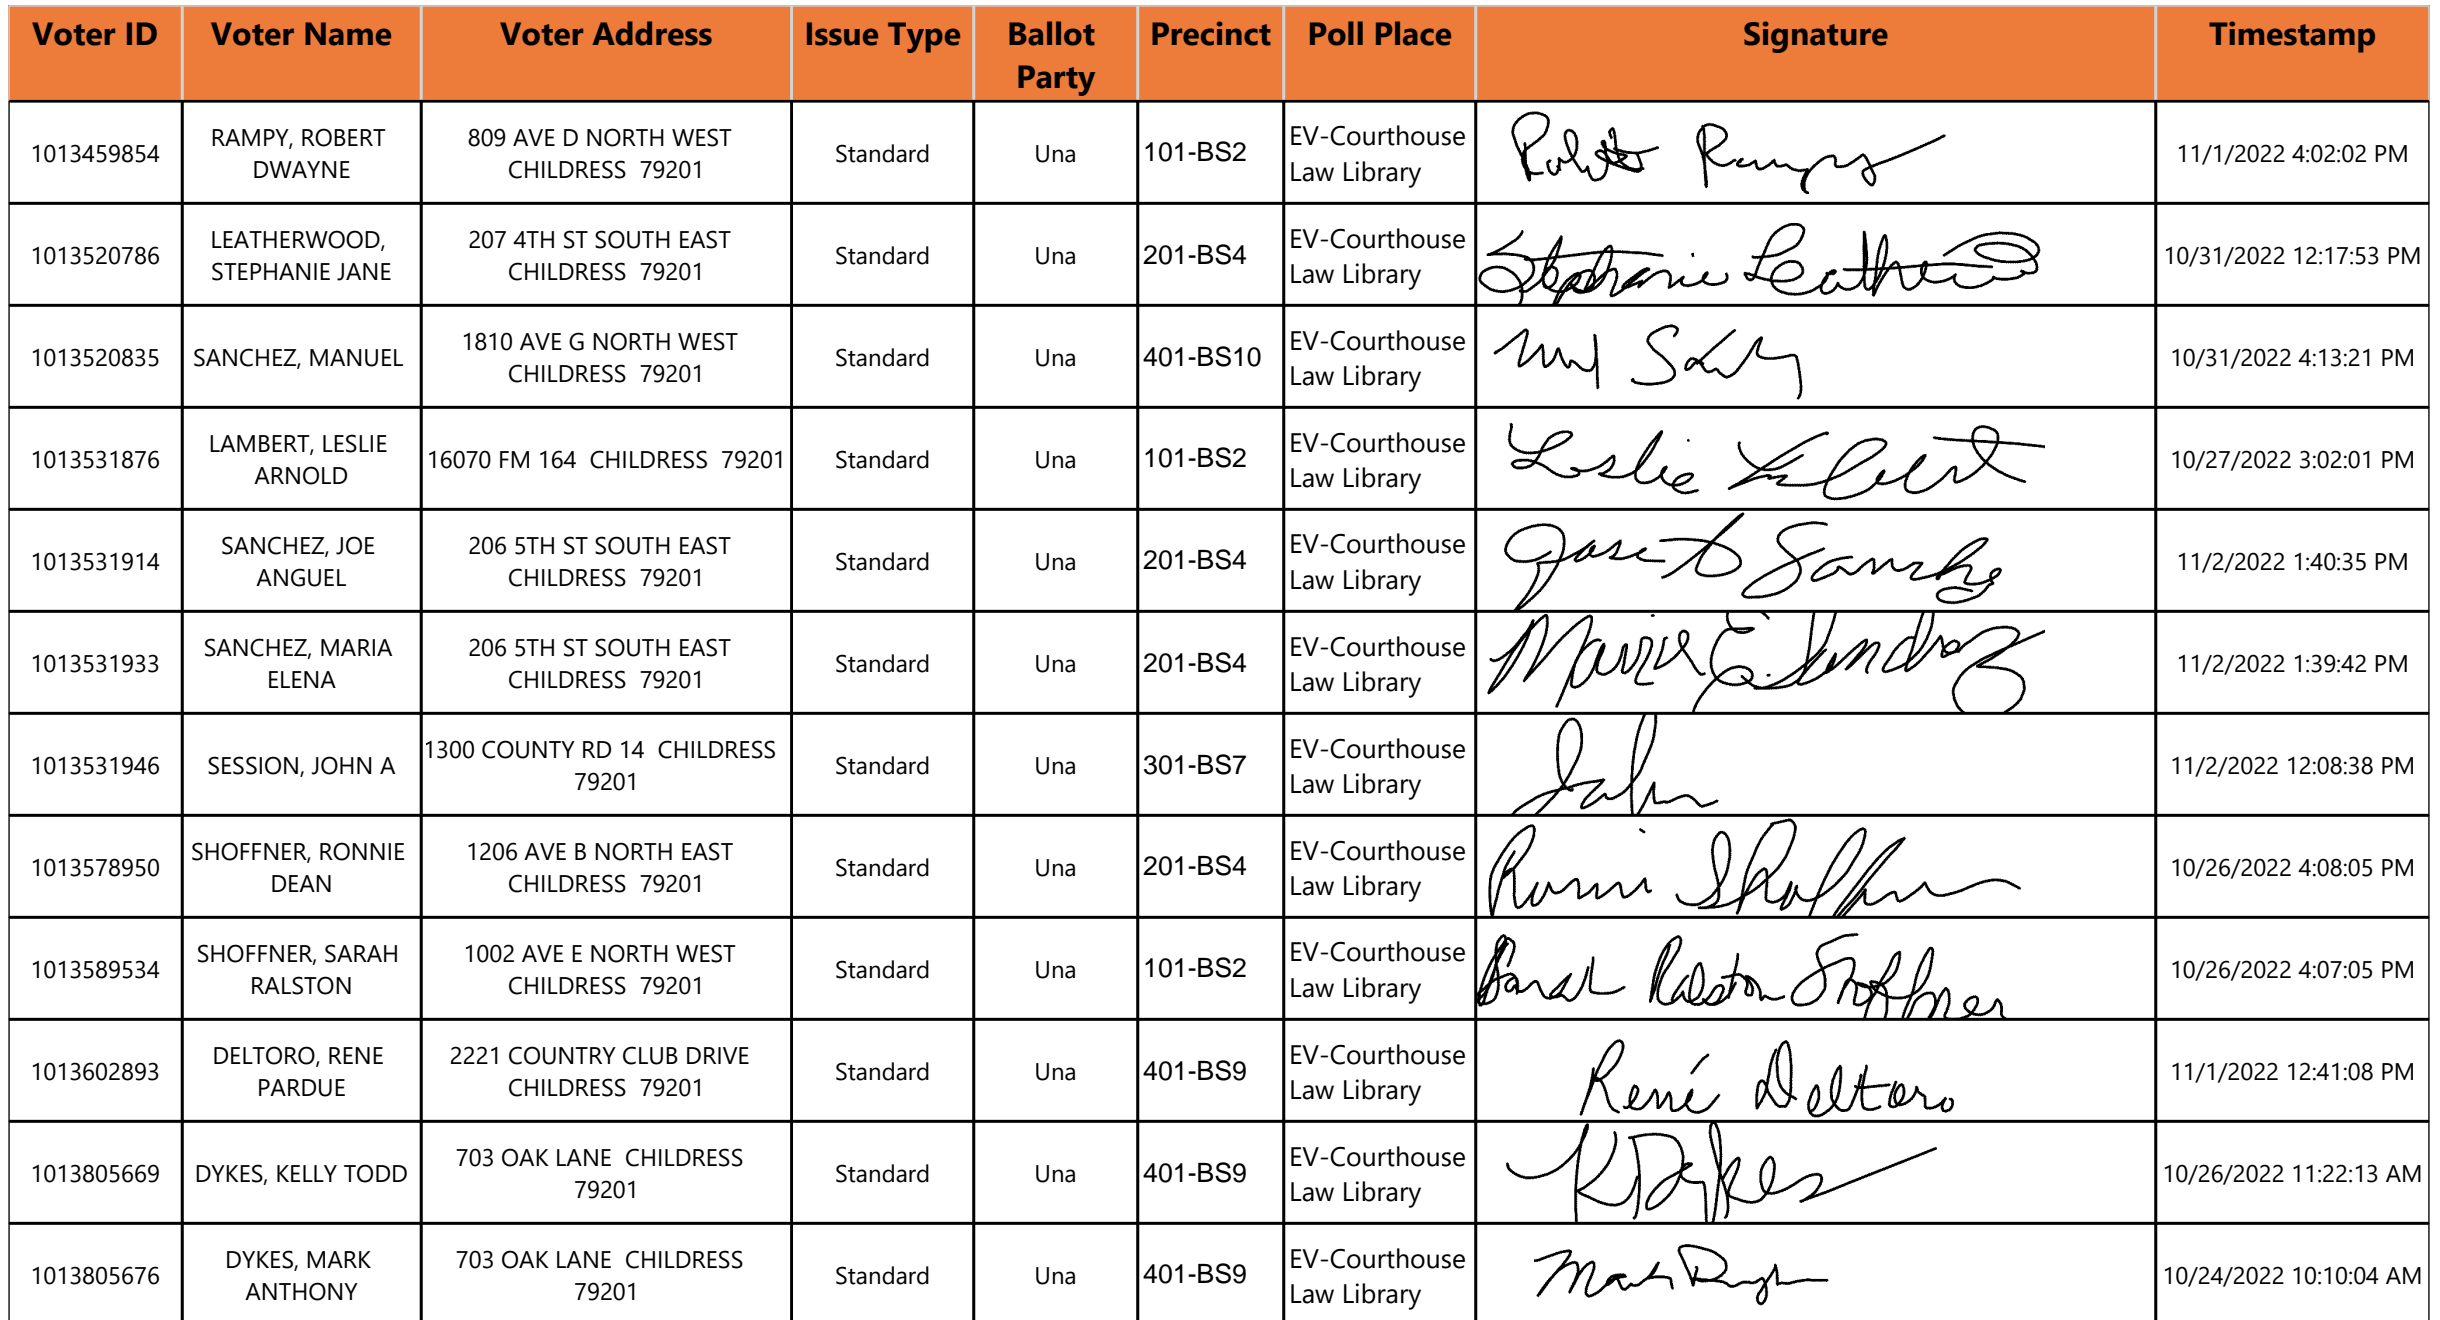 Voter ID Voter Name Voter Address Issue Type Ballot Party Precinct Poll Place Signature Timestamp
1013459854 RAMPY, ROBERT DWAYNE 809 AVE D NORTH WEST CHILDRESS 79201 Standard Una 101-BS2 EV-Courthouse Law Library Robert Rampy 11/1/2022 4:02:02 PM
1013520786 LEATHERWOOD, STEPHANIE JANE 207 4TH ST SOUTH EAST CHILDRESS 79201 Standard Una 201-BS4 EV-Courthouse Law Library Stephanie 10/31/2022 12:17:53 PM
1013520835 SANCHEZ, MANUEL 1810 AVE G NORTH WEST CHILDRESS 79201 Standard Una 401-BS10 EV-Courthouse Law Library 10/31/2022 4:13:21 PM
1013531876 LAMBERT, LESLIE ARNOLD 16070 FM 164 CHILDRESS 79201 Standard Una 101-BS2 EV-Courthouse Law Library Leslie 10/27/2022 3:02:01 PM
1013531914 SANCHEZ, JOE ANGUEL 206 5TH ST SOUTH EAST CHILDRESS 79201 Standard Una 201-BS4 EV-Courthouse Law Library Sanchez 11/2/2022 1:40:35 PM
1013531933 SANCHEZ, MARIA ELENA 206 5TH ST SOUTH EAST CHILDRESS 79201 Standard Una 201-BS4 EV-Courthouse Law Library Maria E. 11/2/2022 1:39:42 PM
1013531946 SESSION, JOHN A 1300 COUNTY RD 14 CHILDRESS 79201 Standard Una 301-BS7 EV-Courthouse Law Library John 11/2/2022 12:08:38 PM
1013578950 SHOFFNER, RONNIE DEAN 1206 AVE B NORTH EAST CHILDRESS 79201 Standard Una 201-BS4 EV-Courthouse Law Library 10/26/2022 4:08:05 PM
1013589534 SHOFFNER, SARAH RALSTON 1002 AVE E NORTH WEST CHILDRESS 79201 Standard Una 101-BS2 EV-Courthouse Law Library Sarah Ralston Shoffner 10/26/2022 4:07:05 PM
1013602893 DELTORO, RENE PARDUE 2221 COUNTRY CLUB DRIVE CHILDRESS 79201 Standard Una 401-BS9 EV-Courthouse Law Library René Deltoro 11/1/2022 12:41:08 PM
1013805669 DYKES, KELLY TODD 703 OAK LANE CHILDRESS 79201 Standard Una 401-BS9 EV-Courthouse Law Library K Dykes 10/26/2022 11:22:13 AM
1013805676 DYKES, MARK ANTHONY 703 OAK LANE CHILDRESS 79201 Standard Una 401-BS9 EV-Courthouse Law Library Mark 10/24/2022 10:10:04 AM